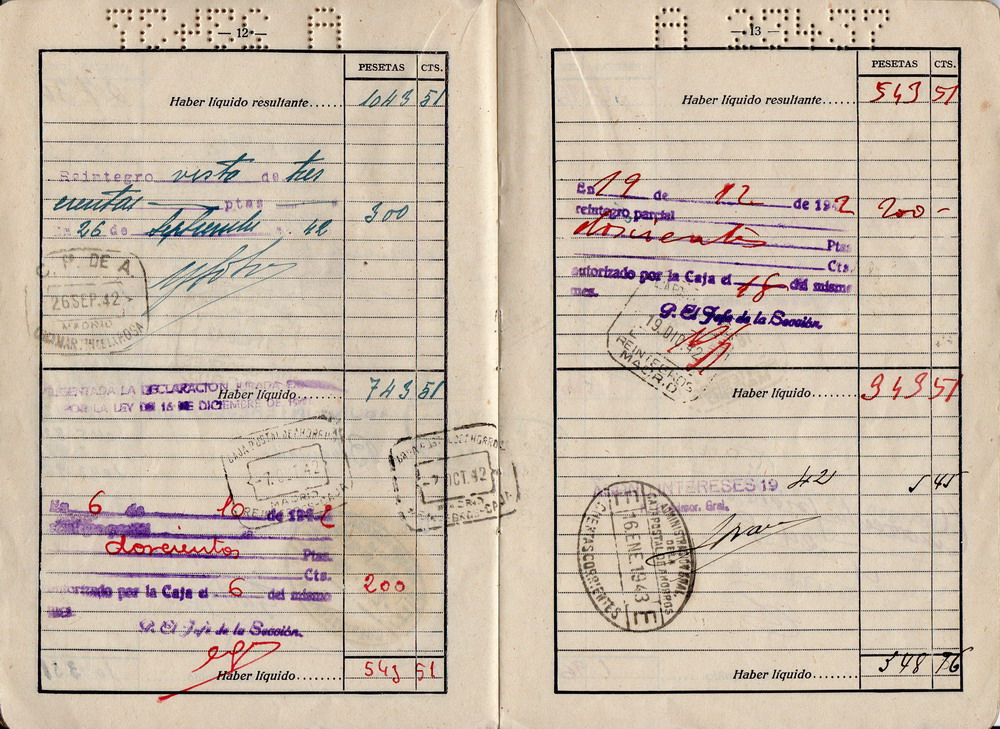 — 12 —
PESETAS CTS.
Haber líquido resultante...... 1043 51
Reintegro visto de tres
cientas ptas 300
26 de Septiembre 42
C. P. DE A.
26 SEP. 42
MADRID
PRESENTADA LA DECLARACION JURADA
POR LA LEY DE 16 DE DICIEMBRE DE
Haber líquido...... 743 51
CAJA POSTAL DE AHORROS
-7. OCT. 42
MADRID
CAJA POSTAL DE AHORROS
-7. OCT. 42
MADRID
REINTEGROS-CAJA
En 6 de 10 de 1942
doscientos Ptas.
Cts.
autorizado por la Caja el 6 del mismo 200
mes.
P. El Jefe de la Sección.
Haber líquido...... 543 51
A 23437
— 13 —
PESETAS CTS.
Haber líquido resultante...... 543 51
En 19 de 12 de 1942 200-
reintegro parcial
doscientas Ptas.
Cts.
autorizado por la Caja el 18 del mismo
mes.
P. El Jefe de la Sección.
19. DIC. 42
REINTEGROS
MADRID
Haber líquido...... 343 51
INTERESES 19 42 5 45
Gral.
ADMINISTRACION GRAL.
DE LA
CAJA POSTAL DE AHORROS
16 ENE 1943
E
CUENTAS CORRIENTES
Haber líquido...... 348 96